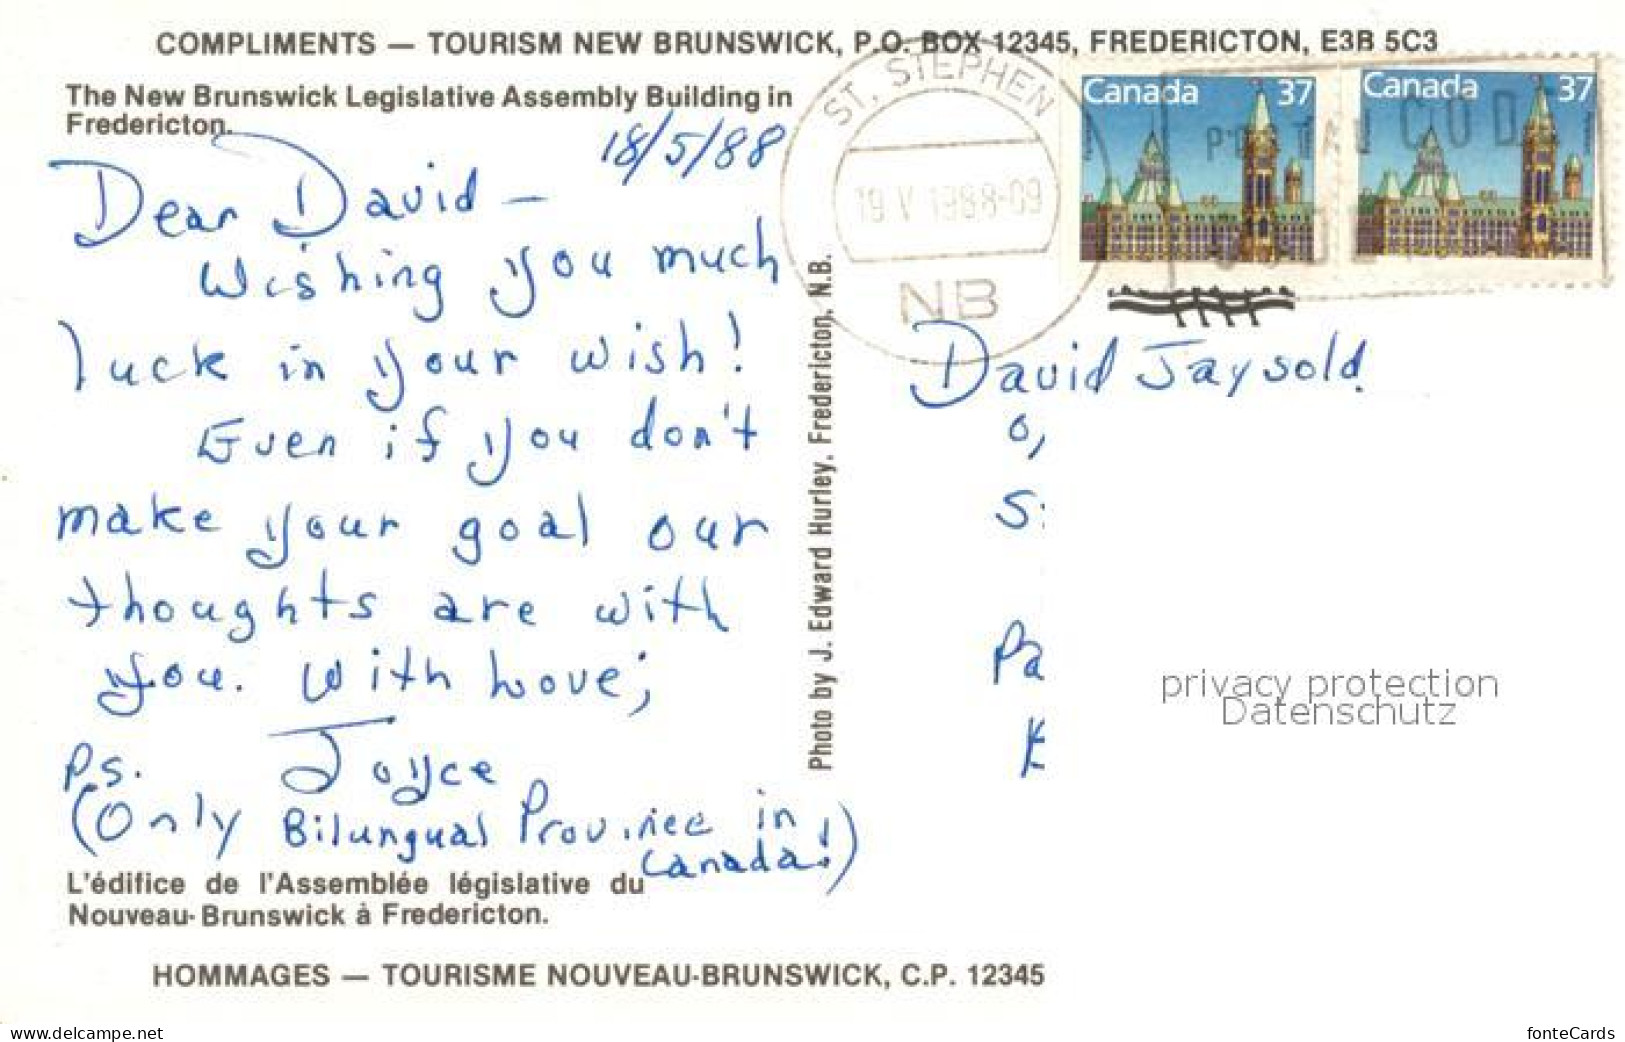 COMPLIMENTS — TOURISM NEW BRUNSWICK, P.O. BOX 12345, FREDERICTON, E3B 5C3
The New Brunswick Legislative Assembly Building in
Fredericton.
18/5/88
Dear David —
Wishing you much
luck in your wish!
Even if you don't
make your goal our
thoughts are with
you. With Love;
Joyce
Ps.
(Only Bilungual Province in
Canada!)
L'édifice de l'Assemblée législative du
Nouveau-Brunswick à Fredericton.
HOMMAGES — TOURISME NOUVEAU-BRUNSWICK, C.P. 12345
Photo by J. Edward Hurley, Fredericton, N.B.
ST. STEPHEN
19 V 1988-09
NB
Canada 37
Canada 37
POSTAL CODE
David Jaysold
Pa
privacy protection
Datenschutz
www.delcampe.net
fonteCards